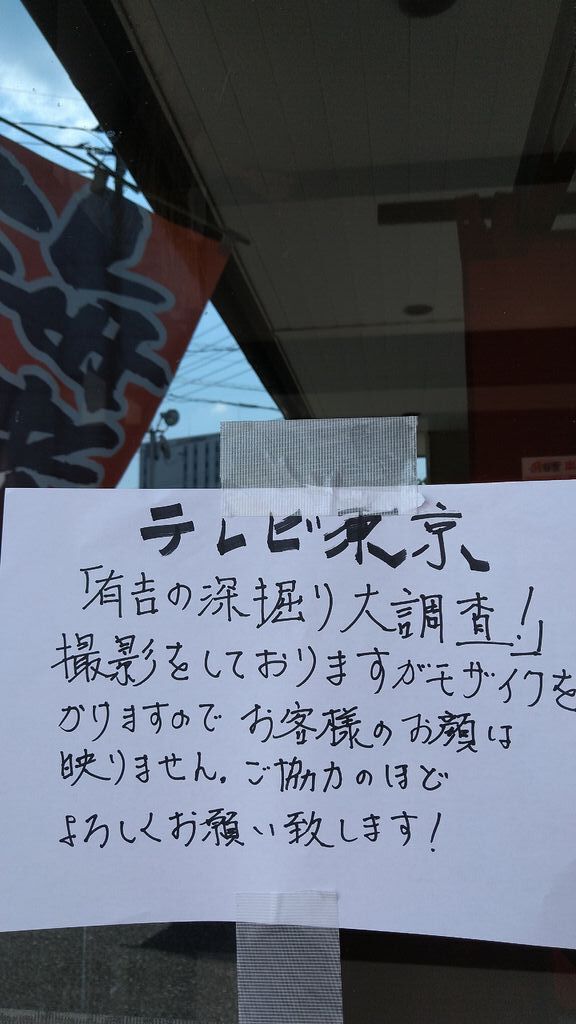 テレビ東京
「有吉の深掘り大調査!」
撮影をしておりますがモザイクを
かけますのでお客様のお顔は
映りません。ご協力のほど
よろしくお願い致します!